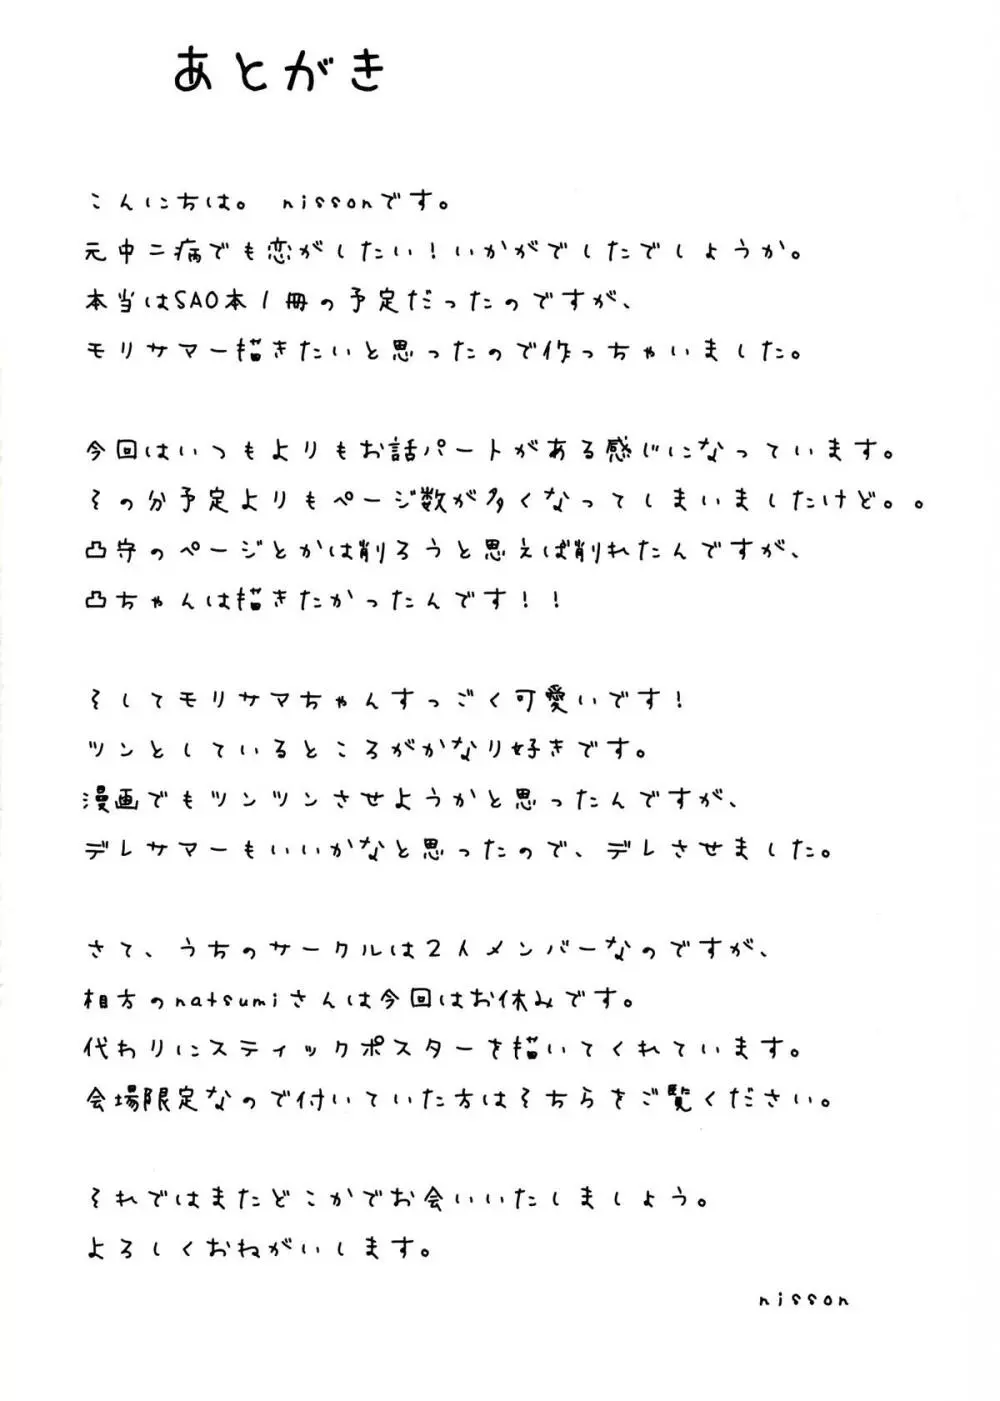 あとがき
こんにちは。 nissonです。
元中二病でも恋がしたい！いかがでしたでしょうか。
本当はSAO本1冊の予定だったのですが、
モリサマー描きたいと思ったので作っちゃいました。
今回はいつもよりもお話パートがある感じになっています。
その分予定よりもページ数が多くなってしまいましたけど。。
凸守のページとかは削ろうと思えば削れたんですが、
凸ちゃんは描きたかったんです！！
そしてモリサマちゃんすっごく可愛いです！
ツンとしているところがかなり好きです。
漫画でもツンツンさせようかと思ったんですが、
デレサマーもいいかなと思ったので、デレさせました。
さて、うちのサークルは2人メンバーなのですが、
相方のnatsumiさんは今回はお休みです。
代わりにスティックポスターを描いてくれています。
会場限定なので付いていた方はそちらをご覧ください。
それではまたどこかでお会いいたしましょう。
よろしくおねがいします。
nisson